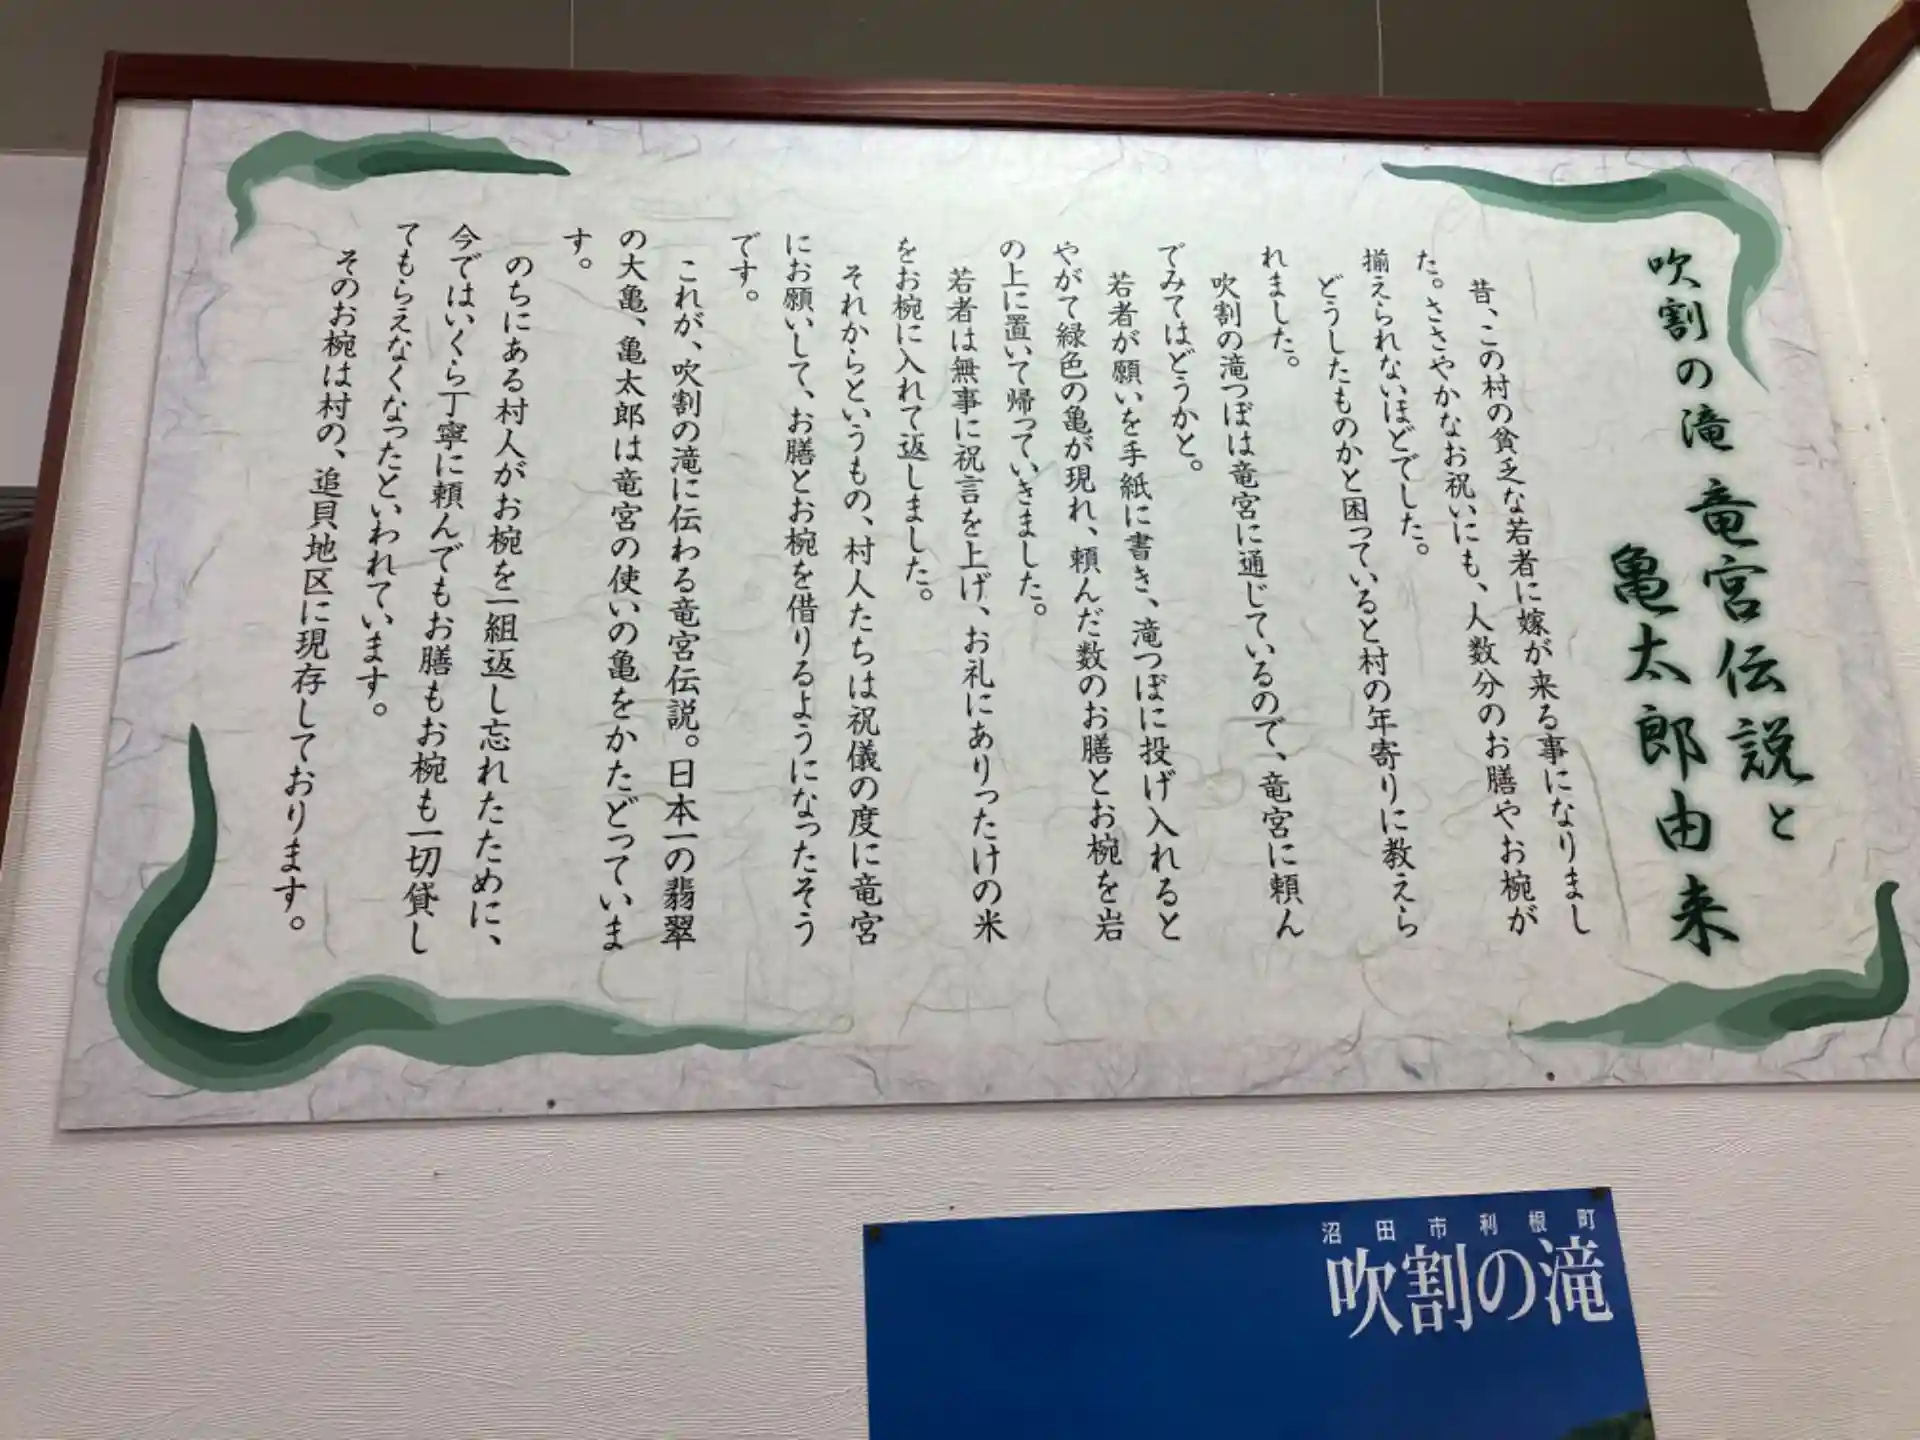 吹割の滝 竜宮伝説と
亀太郎由来
昔、この村の貧乏な若者に嫁が来る事になりまし
た。ささやかなお祝いにも、人数分のお膳やお椀が
揃えられないほどでした。
どうしたものかと困っていると村の年寄りに教えら
れました。
吹割の滝つぼは竜宮に通じているので、竜宮に頼ん
でみてはどうかと。
若者が願いを手紙に書き、滝つぼに投げ入れると
やがて緑色の亀が現れ、頼んだ数のお膳とお椀を岩
の上に置いて帰っていきました。
若者は無事に祝言を上げ、お礼にありったけの米
をお椀に入れて返しました。
それからというもの、村人たちは祝儀の度に竜宮
にお願いして、お膳とお椀を借りるようになったそう
です。
これが、吹割の滝に伝わる竜宮伝説。日本一の翡翠
の大亀、亀太郎は竜宮の使いの亀をかたどっていま
す。
のちにある村人がお椀を一組返し忘れたために、
今ではいくら丁寧に頼んでもお膳もお椀も一切貸し
てもらえなくなったといわれています。
そのお椀は村の、追貝地区に現存しております。
沼田市利根町
吹割の滝